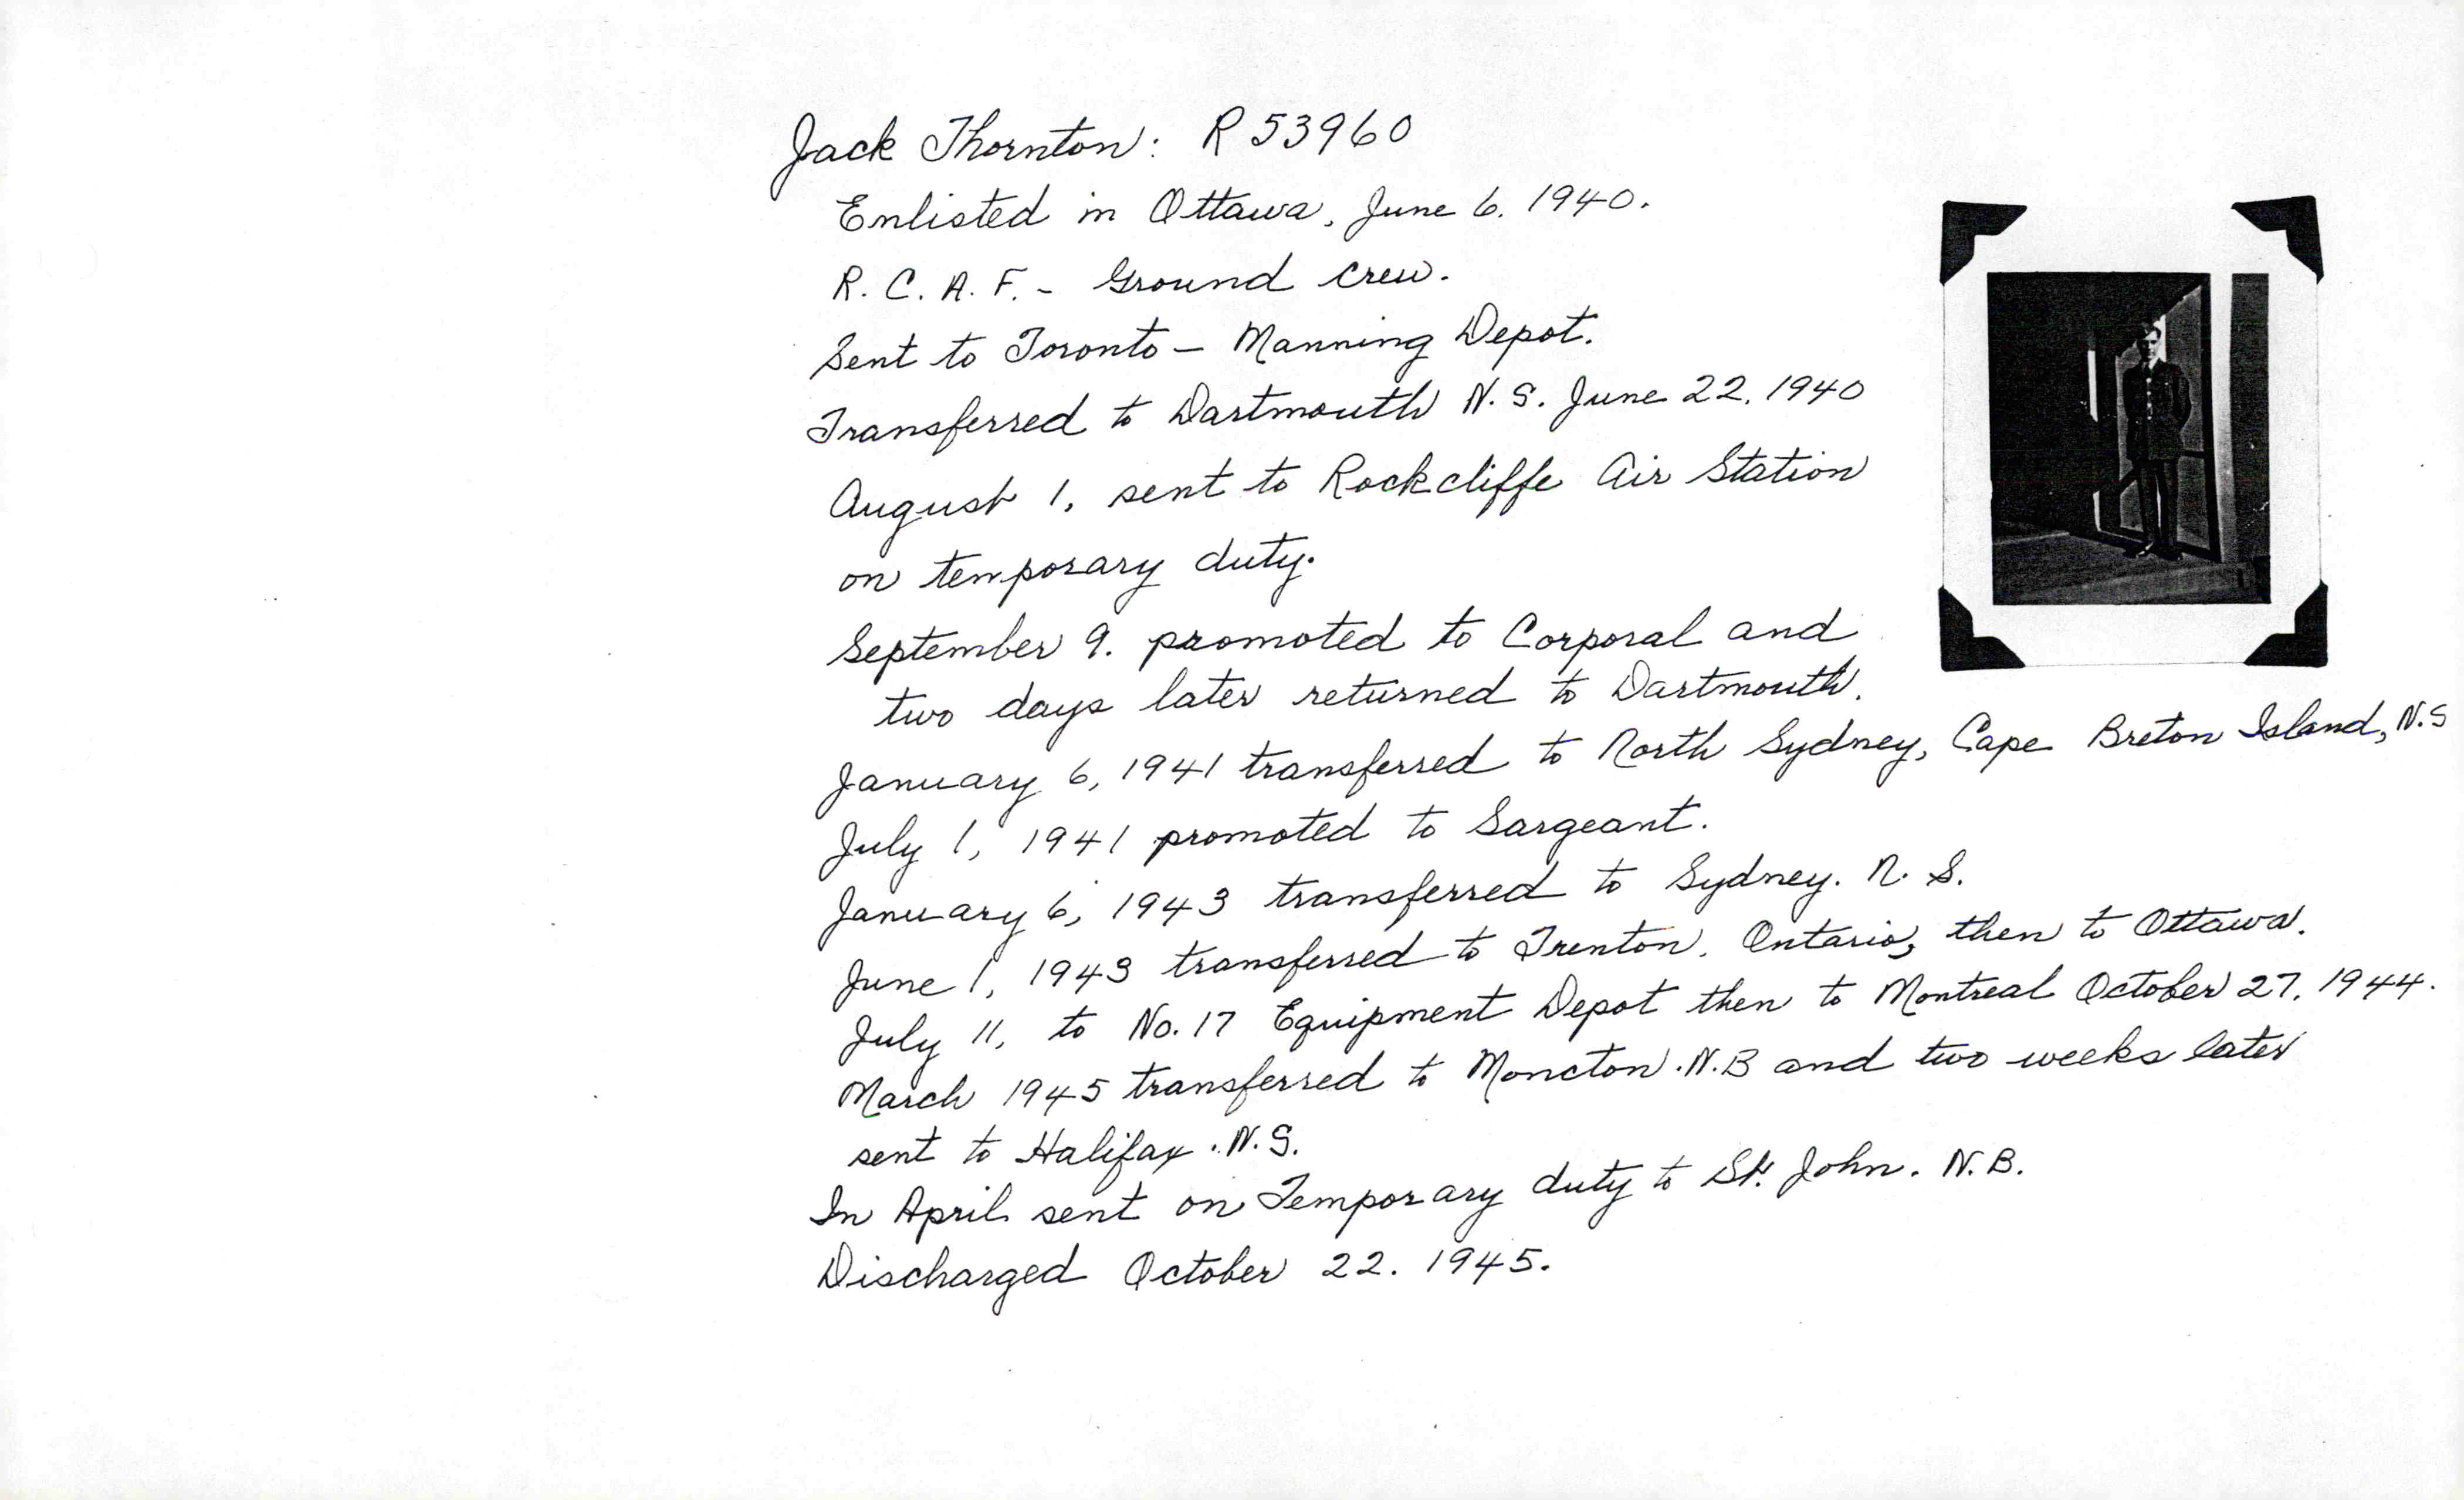 Jack Thornton: R53960
Enlisted in Ottawa, June 6. 1940.
R. C. A. F. - Ground Crew.
Sent to Toronto - Manning Depot.
Transferred to Dartmouth N. S. June 22. 1940
August 1, sent to Rockcliffe Air Station
on temporary duty.
September 9. promoted to Corporal and
two days later returned to Dartmouth.
January 6, 1941 transferred to North Sydney, Cape Breton Island, N.S
July 1, 1941 promoted to Sargeant.
January 6, 1943 transferred to Sydney. N. S.
June 1, 1943 transferred to Trenton. Ontario, then to Ottawa.
July 11, to No. 17 Equipment Depot then to Montreal October 27. 1944.
March 1945 transferred to Moncton. N.B and two weeks later
sent to Halifax. N.S.
In April sent on Temporary duty to St. John. N.B.
Discharged October 22. 1945.